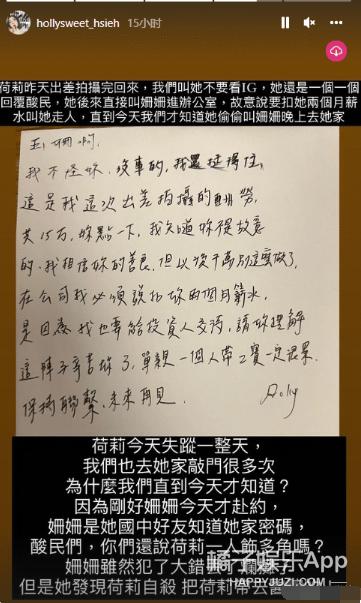 hollysweet_hsieh 15小时
荷莉昨天出差拍攝完回來，我們叫她不要看IG，她還是一個一個
回覆酸民，她後來直接叫姍姍進辦公室，故意說要扣她兩個月薪
水叫她走人，直到今天我們才知道她偷偷叫姍姍晚上去她家
我不怪妳，沒事的，我還挺得住，
這是我這次出差拍攝的酬勞，
共15万，妳點一下，我知道妳不是故意
的，我相信妳的善良，但以後千萬別這麼做了，
在公司我必須說扣妳2個月薪水，
是因為我也要給投資人交待，請妳理解
這陣子辛苦妳了，單親一個人帶2寶一定很累，
保持聯繫，未來再見．
荷莉今天失蹤一整天，
我們也去她家敲門很多次
為什麼我們直到今天才知道？
因為剛好姍姍今天才赴約，
姍姍是她國中好友知道她家密碼，
酸民們，你們還說荷莉一人飾多角嗎？
姍姍雖然犯了大錯
但是她發現荷莉自殺 把荷莉帶去
橘子娱乐App
HAPPYJUZI.COM